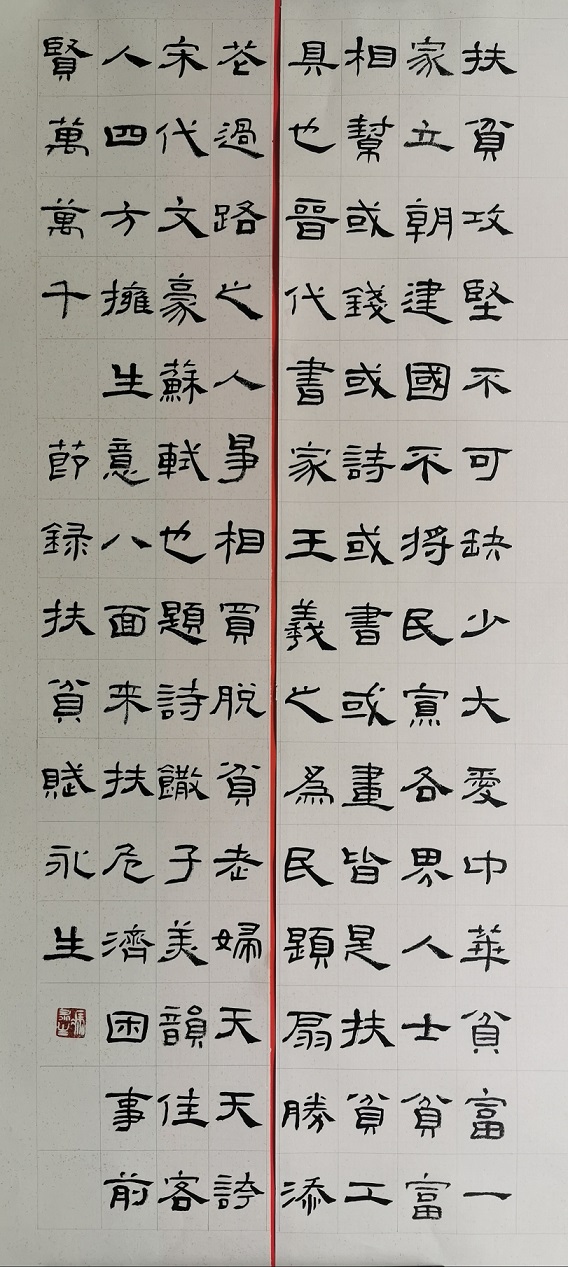 扶貧攻堅不可缺少大愛中華貧富一
家立朝建國不將民各界人士貧富
相幫或錢或詩或書或畫皆是扶貧工
具也晉代書家王羲之為民題扇勝添
花過路之人爭相買脱貧老婦天天誇
宋代文豪蘇軾也題詩饊子美韻佳客
人四方擁生意八面来扶危濟困事前
賢萬萬千 節録扶貧賦永生